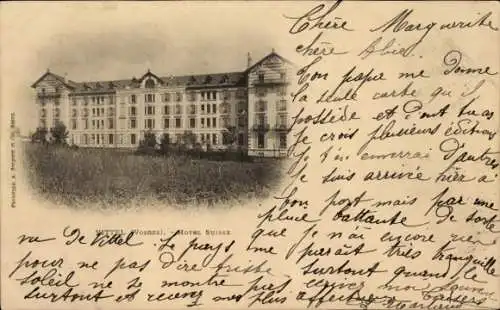 Chère Marguerite
chère
Ton papa me donne
la seule carte qu'il
possède et dont tu as
je crois plusieurs éditions
Je t'en enverrai d'autres
Je suis arrivée hier à
bon port mais par une
pluie battante de sorte
que je n'ai encore rien
vu de Vittel. Le pays me paraît très tranquille
pour ne pas dire triste surtout quand le
soleil ne se montre pas
surtout et recevez mes plus affectueux baisers
VITTEL (VOSGES). - HOTEL SUISSE